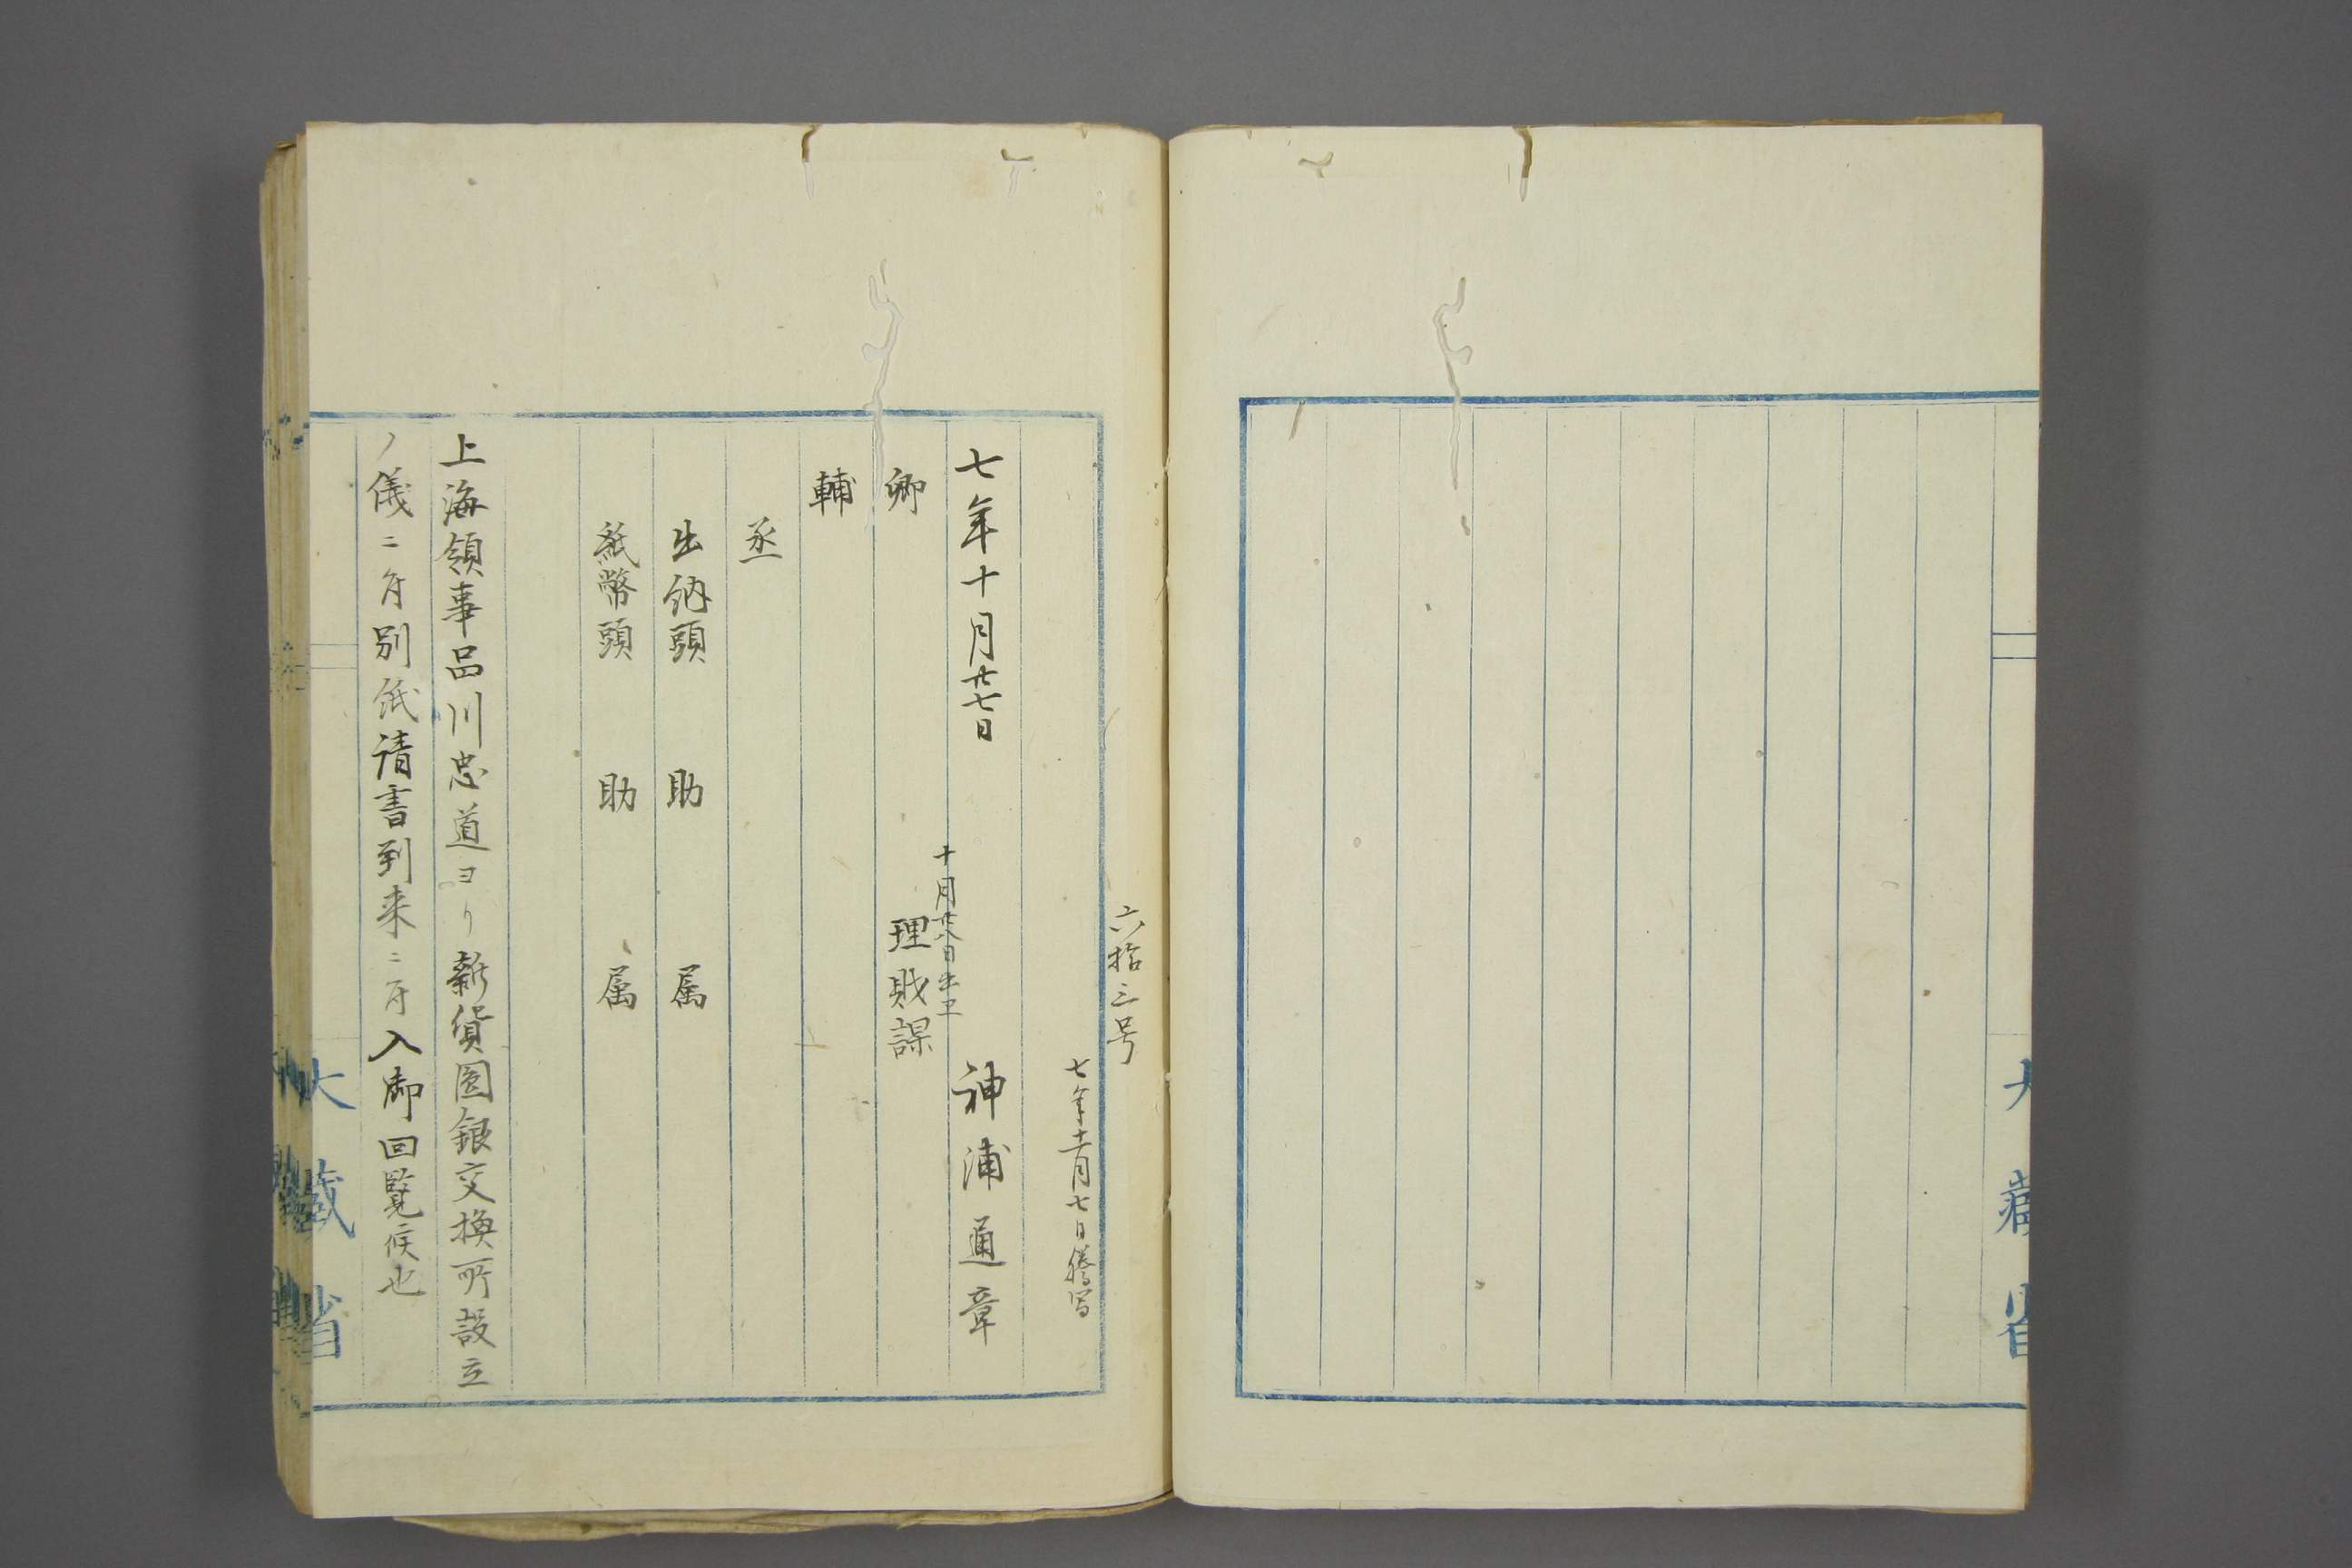 大藏省
六拾三号
七年十二月七日謄写
七年十月廿七日 神浦通章
十月廿八日
卿 理財課
輔
丞
出納頭 助 属
紙幣頭 助 属
上海領事品川忠道ヨリ新貨圓銀交換所設立
ノ儀ニ付別紙請書到来ニ付入御回覧候也
大藏省